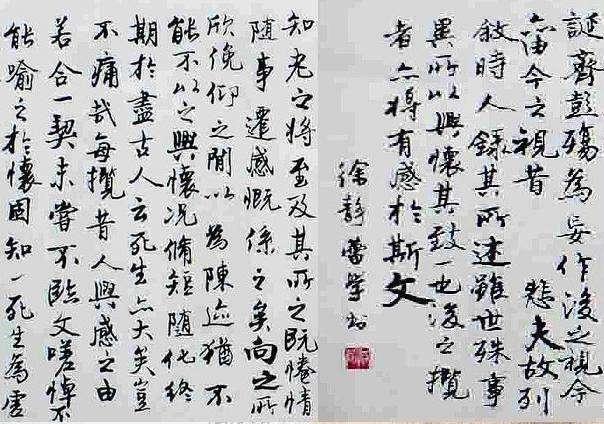 知老之將至及其所之既惓情
隨事遷感慨係之矣向之所
欣俛仰之閒以為陳迹猶不
能不以之興懷況脩短隨化終
期於盡古人云死生亦大矣豈
不痛哉每攬昔人興感之由
若合一契未嘗不臨文嗟悼不
能喻之於懷固知一死生為虛
誕齊彭殤為妄作後之視今
亦由今之視昔 悲夫故列
敘時人錄其所述雖世殊事
異所以興懷其致一也後之攬
者亦將有感於斯文
徐靜蕾學書